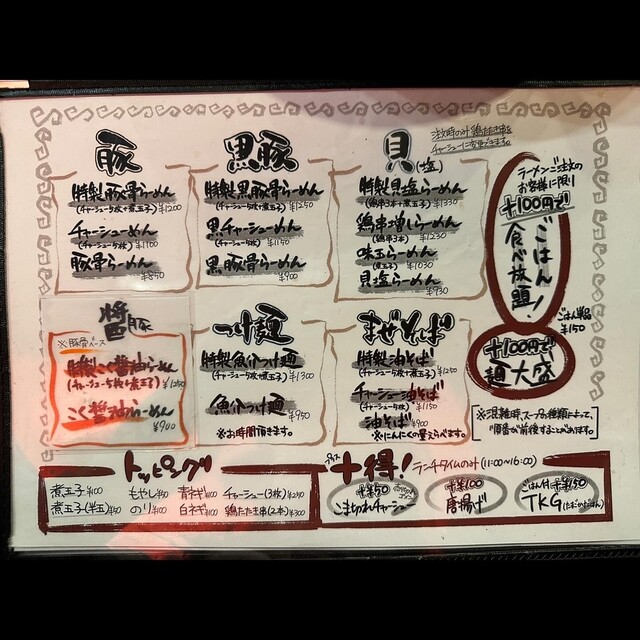 豚
特製豚骨らーめん
(チャーシュー5枚+煮玉子) ¥1200
チャーシューめん
(チャーシュー5枚) ¥1100
豚骨らーめん
¥850
黒豚
特製黒豚骨らーめん
(チャーシュー5枚+煮玉子) ¥1250
黒チャーシューめん
(チャーシュー5枚) ¥1150
黒豚骨らーめん
¥900
貝(塩)
注文時のみ 鶏たたき串を
チャーシューに変更できます。
特製貝塩らーめん
(鶏串3本+煮玉子) ¥1330
鶏串増しらーめん
(鶏串3本) ¥1230
味玉らーめん
(煮玉子) ¥1030
貝塩らーめん
¥930
ラーメンご注文の
お客様に限り
+100円で
ごはん
食べ放題!
ごはん単品
¥150
+100円で
麺大盛
※混雑時、スープの種類によって、
順番が前後することがあります。
醬豚
※豚骨ベース
特製こく醬油らーめん
(チャーシュー5枚+煮玉子) ¥1250
こく醬油らーめん
¥900
つけ麺
特製魚介つけ麺
(チャーシュー5枚+煮玉子) ¥1300
魚介つけ麺
¥950
※お時間頂きます。
まぜそば
特製油そば
(チャーシュー5枚+煮玉子) ¥1250
チャーシュー油そば
(チャーシュー5枚) ¥1150
油そば
¥900
※にんにくの有無えらべます。
トッピング
煮玉子 ¥100 もやし ¥50 青ネギ ¥100 チャーシュー(3枚) ¥240
煮玉子(半玉) ¥50 のり ¥100 白ネギ ¥100 鶏たたき串(2本) ¥300
プラス
十得! ランチタイムのみ (11:00〜16:00)
+¥50
こま切れチャーシュー
+¥100
唐揚げ
ごはん付 +¥150
TKG(たまごかけごはん)